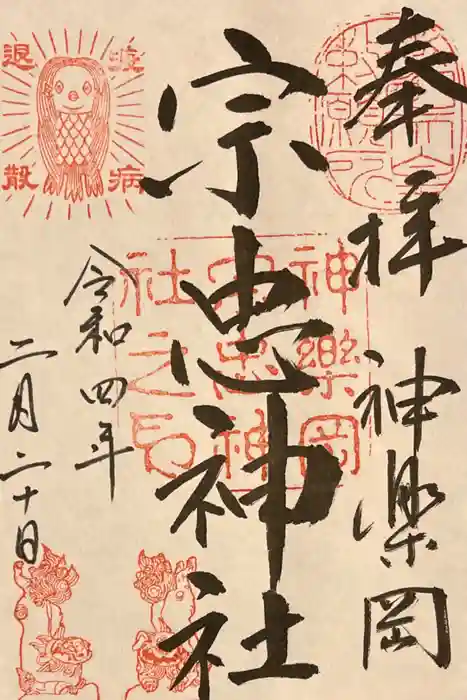 奉拝
神楽岡
宗忠神社
令和四年
二月二十日
疫病
退散
神樂岡
宗忠神
社之印